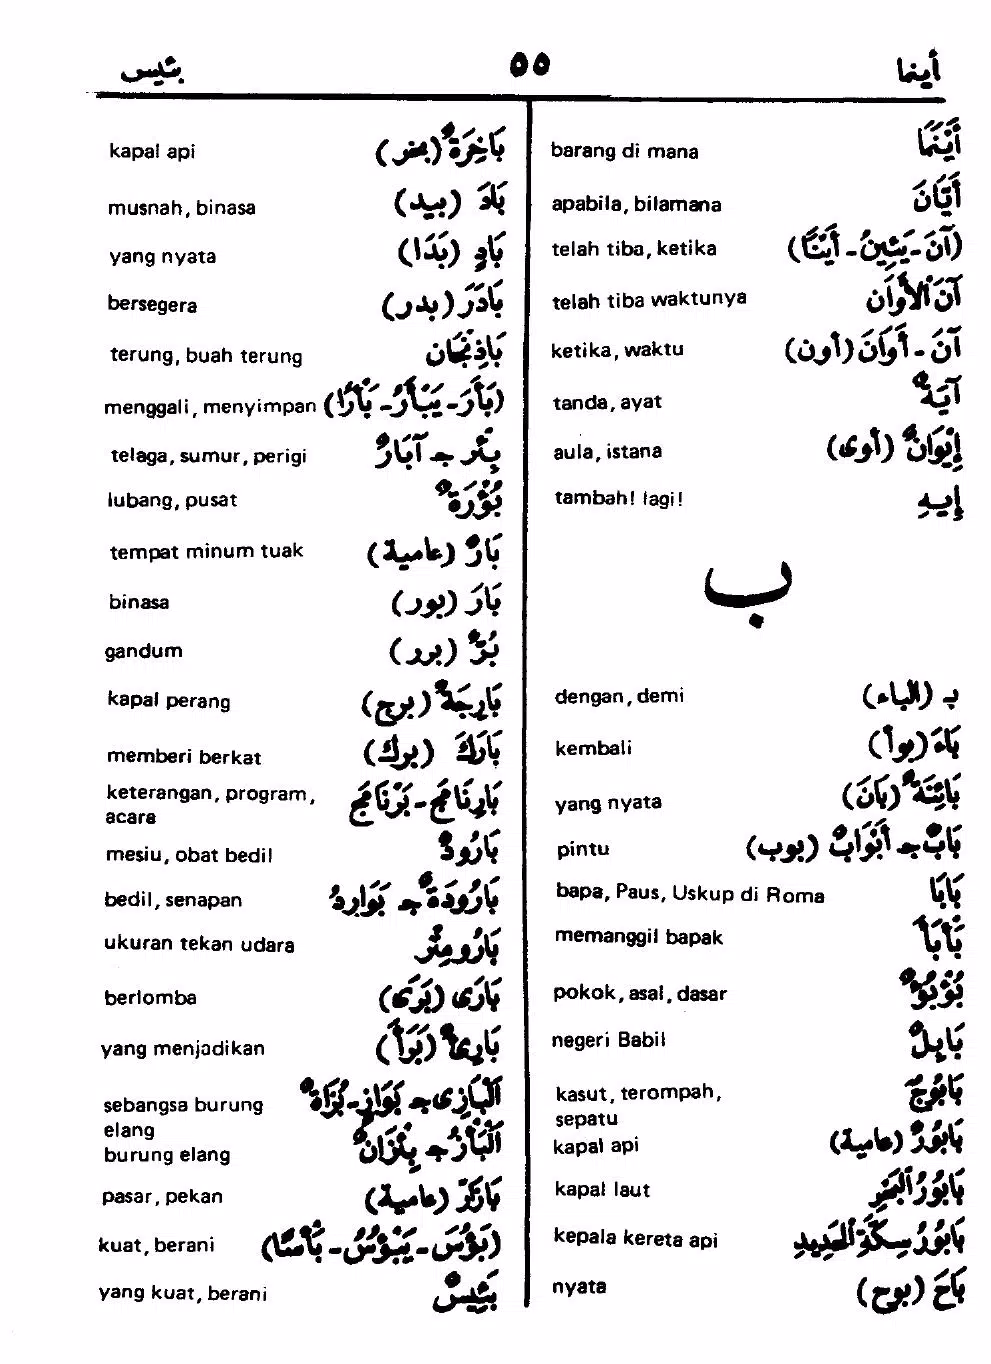 أينما ٥٥ بئيس
أَيْنَمَا barang di mana
أَيَّانَ apabila, bilamana
(آنَ - يَئِينُ - أَيْنًا) telah tiba, ketika
آنَ ٱلأَوَانُ telah tiba waktunya
آنَ - أَوَانَ (أون) ketika, waktu
آيَةٌ tanda, ayat
إِيْوَانٌ (أوى) aula, istana
إِيهِ tambah! lagi!
ب
بـ (الباء) dengan, demi
بَاءَ (بوأ) kembali
بَائِنَةٌ (بَانَ) yang nyata
بَابٌ جـ أَبْوَابٌ (بوب) pintu
بَابَا bapa, Paus, Uskup di Roma
بَأْبَأَ memanggil bapak
بُؤْبُؤٌ pokok, asal, dasar
بَابِلُ negeri Babil
بَابُوجٌ kasut, terompah,
sepatu
بَابُورٌ (عامية) kapal api
بَابُورُ ٱلبَحْرِ kapal laut
بَابُورُ سِكَّةِ ٱلْحَدِيدِ kepala kereta api
بَاحَ (بوح) nyata
بَاخِرَةٌ (بخر) kapal api
بَادَ (بيد) musnah, binasa
بَادٍ (بَدَا) yang nyata
بَادَرَ (بدر) bersegera
بَاذِنْجَان terung, buah terung
(بَأَرَ - يَبْأَرُ - بَأْرًا) menggali, menyimpan
بِئْرٌ جـ آبَارٌ telaga, sumur, perigi
بُؤْرَةٌ lubang, pusat
بَارٌ (عامية) tempat minum tuak
بَارَ (بور) binasa
بُرٌّ (برر) gandum
بَارِجَةٌ (برج) kapal perang
بَارَكَ (برك) memberi berkat
بَارِنَامَج - بَرْنَامَج keterangan, program,
acara
بَارُودٌ mesiu, obat bedil
بَارُودَةٌ جـ بَوَارِدُ bedil, senapan
بَارُومِتْر ukuran tekan udara
بَارَى (بَرَى) berlomba
بَارِئٌ (بَرَأَ) yang menjadikan
ٱلْبَازِى جـ بَوَازٍ - بُزَاةٌ sebangsa burung
elang
ٱلْبَأْزُ جـ بِئْزَانٌ burung elang
بَازَرٌ (عامية) pasar, pekan
(بَؤُسَ - يَبْؤُسُ - بَأْسًا) kuat, berani
بَئِيسٌ yang kuat, berani